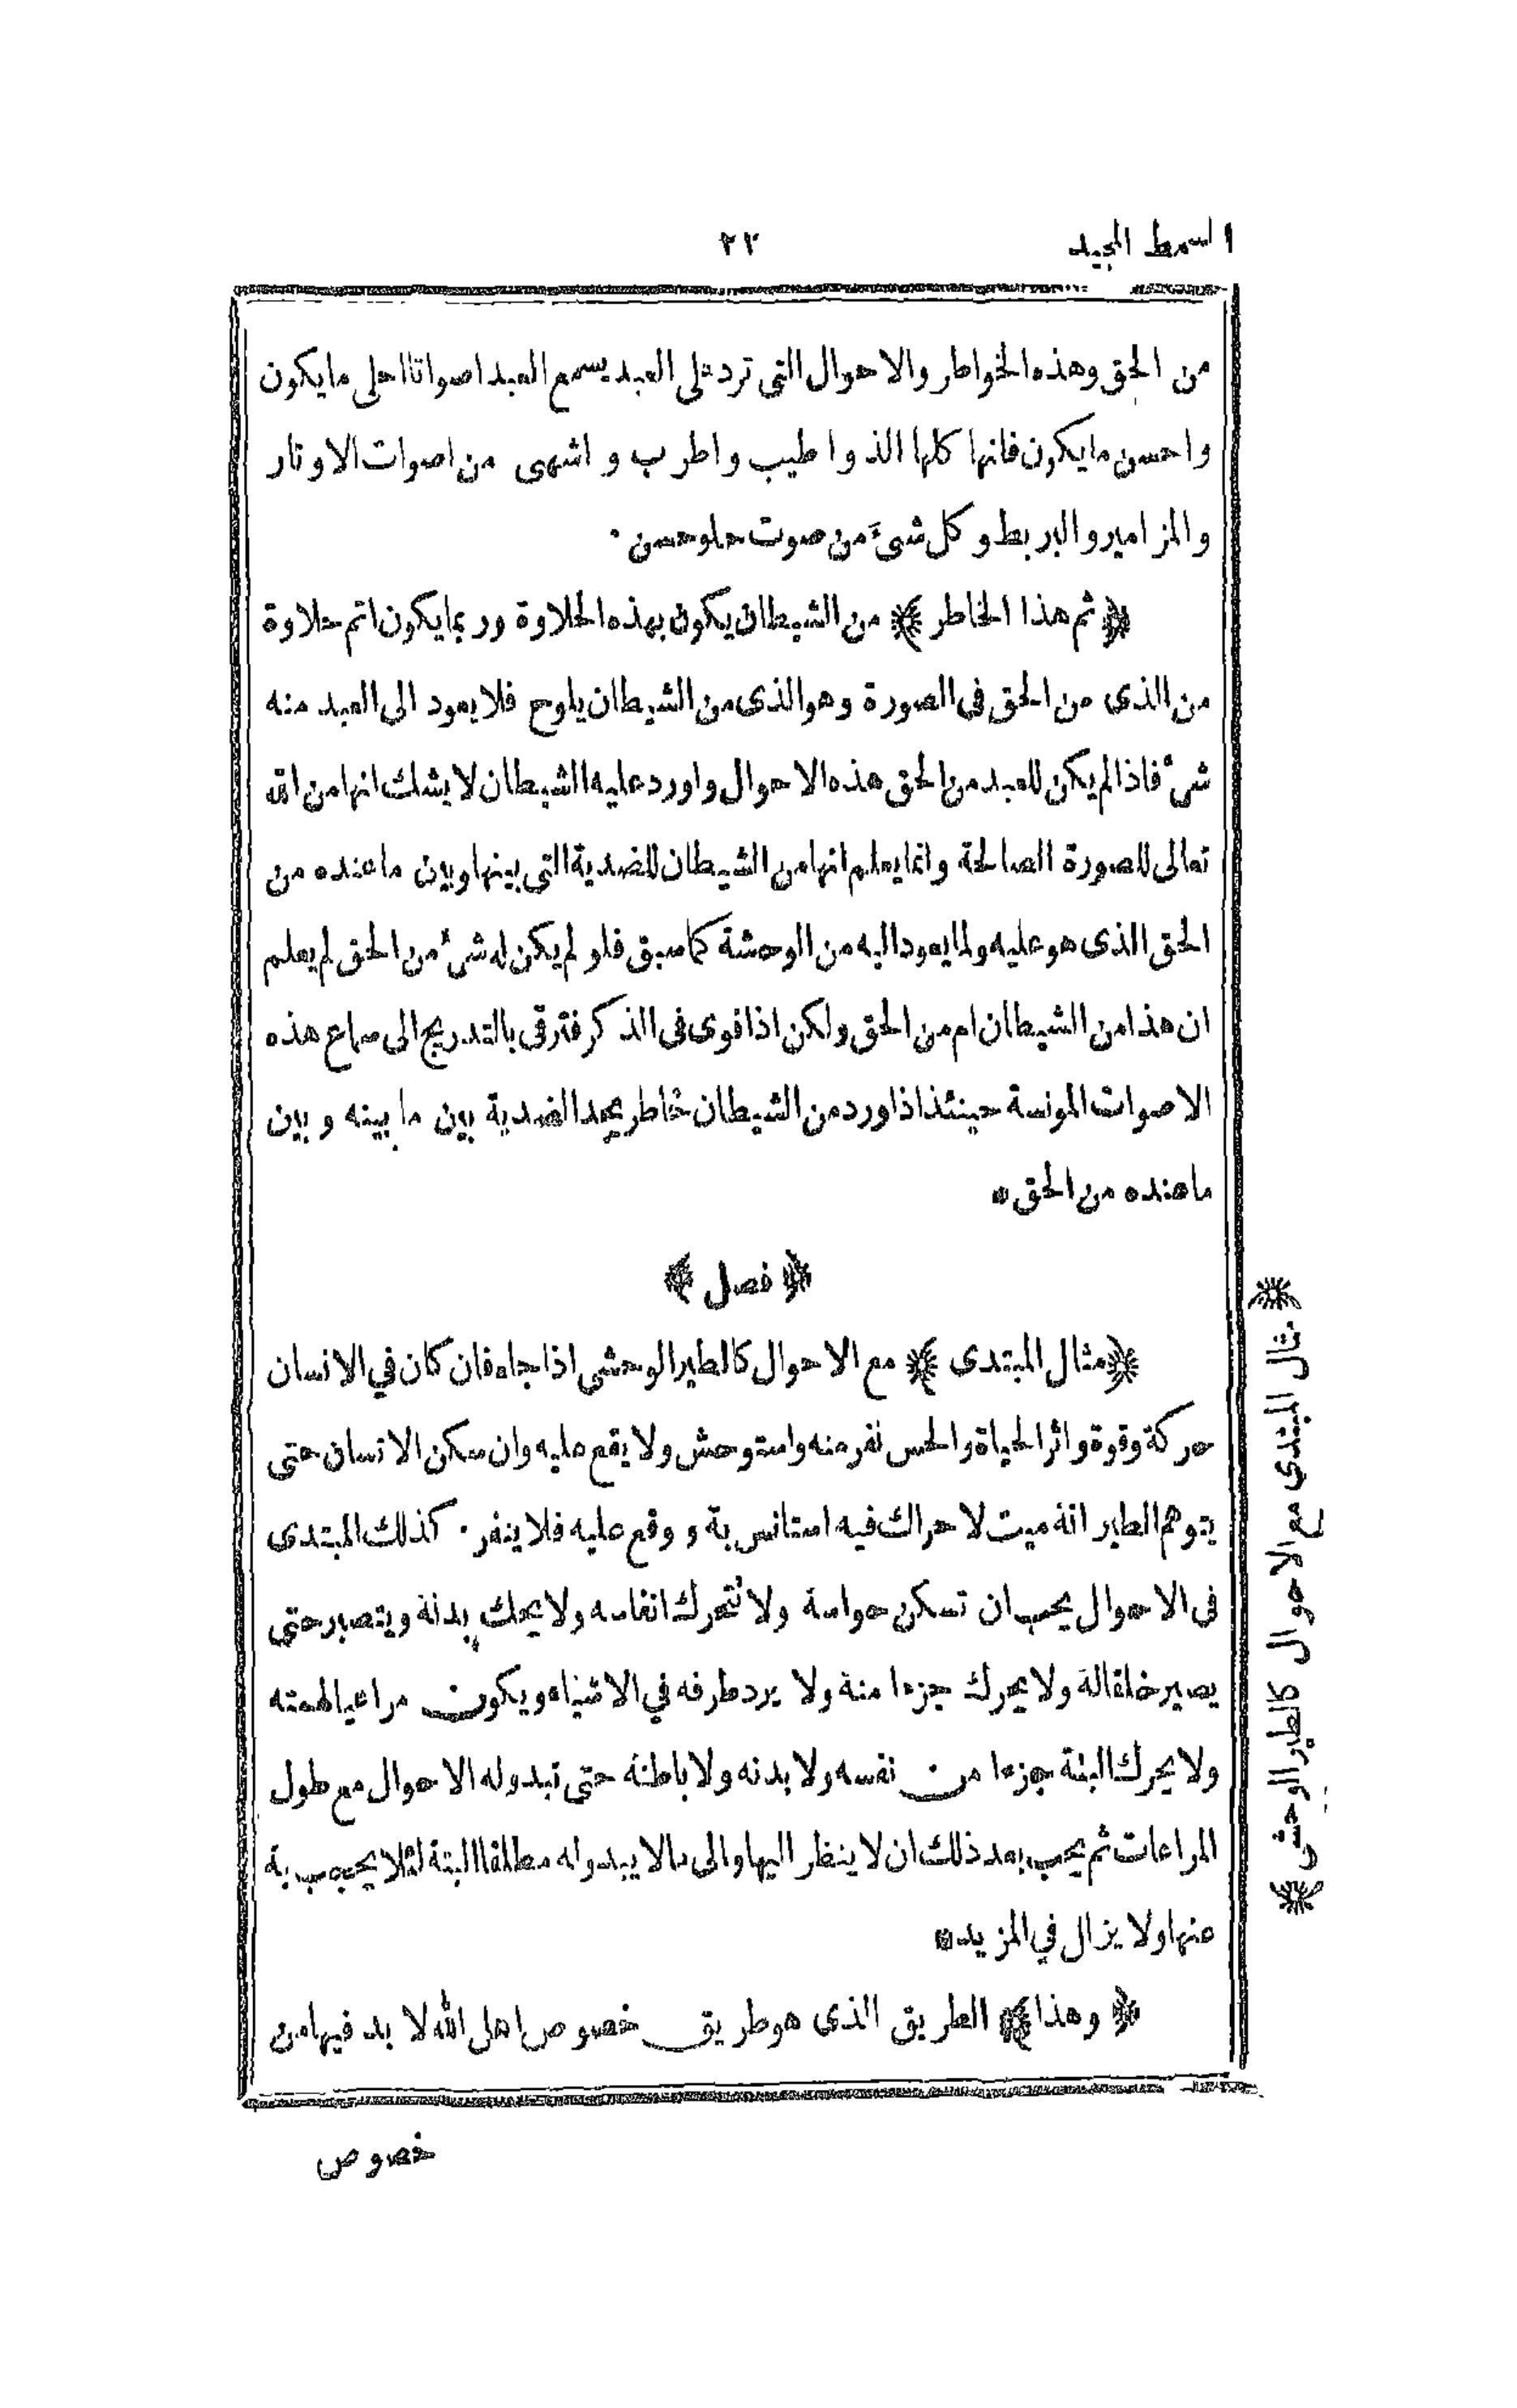 السمط المجيد
٢٢
من الحق وهذه الخواطر والاحوال التي ترد على العبد يسمع العبد اصواتا احلى ما يكون
واحسن ما يكون فانها كلها الذ واطيب واطرب واشهى من اصوات الاوتار
والمزامير والبربط وكل شئ من صوت حلو حسن ٠
﴿ ثم هذا الخاطر ﴾ من الشيطان يكون بهذه الحلاوة وربما يكون اتم حلاوة
من الذى من الحق فى الصورة وهو الذى من الشيطان يلوح فلا يعود الى العبد منه
شئ فاذا لم يكن للعبد من الحق هذه الاحوال واورد عليه الشيطان لا يشك انها من الله
تعالى للصورة الصالحة وانما يعلم انها من الشيطان للضدية التى بينها وبين ما عنده من
الحق الذى هو عليه ولما يعود اليه من الوحشة كما سبق فلو لم يكن له شئ من الحق لم يعلم
ان هذا من الشيطان ام من الحق ولكن اذا قوى فى الذكر فترقى بالتدريج الى سماع هذه
الاصوات المونسة حينئذ اذا ورد من الشيطان خاطر يجد الضدية بين ما بينه وبين
ما عنده من الحق *
﴿ فصل ﴾
﴿ مثال المبتدى ﴾ مع الاحوال كالطير الوحشى اذا جاء فان كان في الانسان
حركة وقوة واثر الحياة والحس نفر منه واستوحش ولا يقع عليه وان سكن الانسان حتى
يتوهم الطير انة ميت لا حراك فيه استانس بة ووقع عليه فلا ينفر ٠ كذلك المبتدى
فى الاحوال يجب ان تسكن حواسة ولا تتحرك انفاسه ولا يحك بدنة ويتصبر حتى
يصير خلقا لة ولا يحرك جزءا منة ولا يرد طرفه في الاشياء ويكون مراعيا لهمته
ولا يحرك البتة جزءا من نفسه ولا بدنه ولا باطنة حتى تبدو له الاحوال مع طول
المراعات ثم يجب بعد ذلك ان لا ينظر اليها والى ما لا يبدو له مطلقا البتة لئلا يحجب بة
منها ولا يزال في المزيد *
﴿ وهذا ﴾ الطريق الذى هو طريق خصوص اهل الله لا بد فيها من
خصوص
﴿ مثال المبتدي مع الاحوال كالطير الوحشى ﴾